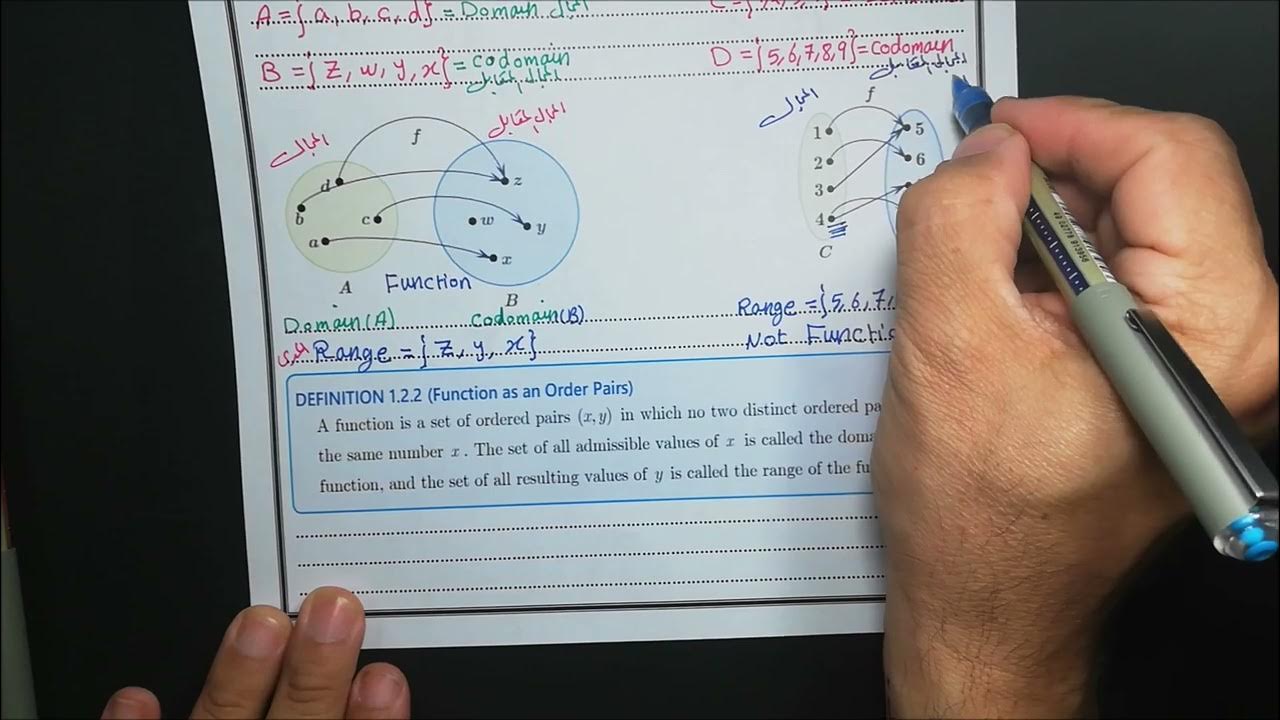 A = {a, b, c, d} = Domain المجال
B = {z, w, y, x} = codomain
المجال المقابل
D = {5, 6, 7, 8, 9} = codomain
المجال المقابل
المجال
f
المجال المقابل
d
b
c
a
z
w
y
x
A
Function
B
المجال
f
1
2
3
4
5
6
C
Domain(A)
codomain(B)
Range = {5, 6, 7,
المدى Range = {z, y, x}
Not Functio
DEFINITION 1.2.2 (Function as an Order Pairs)
A function is a set of ordered pairs (x, y) in which no two distinct ordered pa
the same number x . The set of all admissible values of x is called the doma
function, and the set of all resulting values of y is called the range of the fu